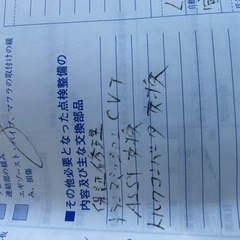 エギゾースト・パイプ、マフラの取付けの緩
み、損傷
連結部の緩み
■その他必要となった点検整備の
内容及び主な交換部品
保証修理
トランスミッション CVT
ASSY 交換
トルクコンバータ 交換